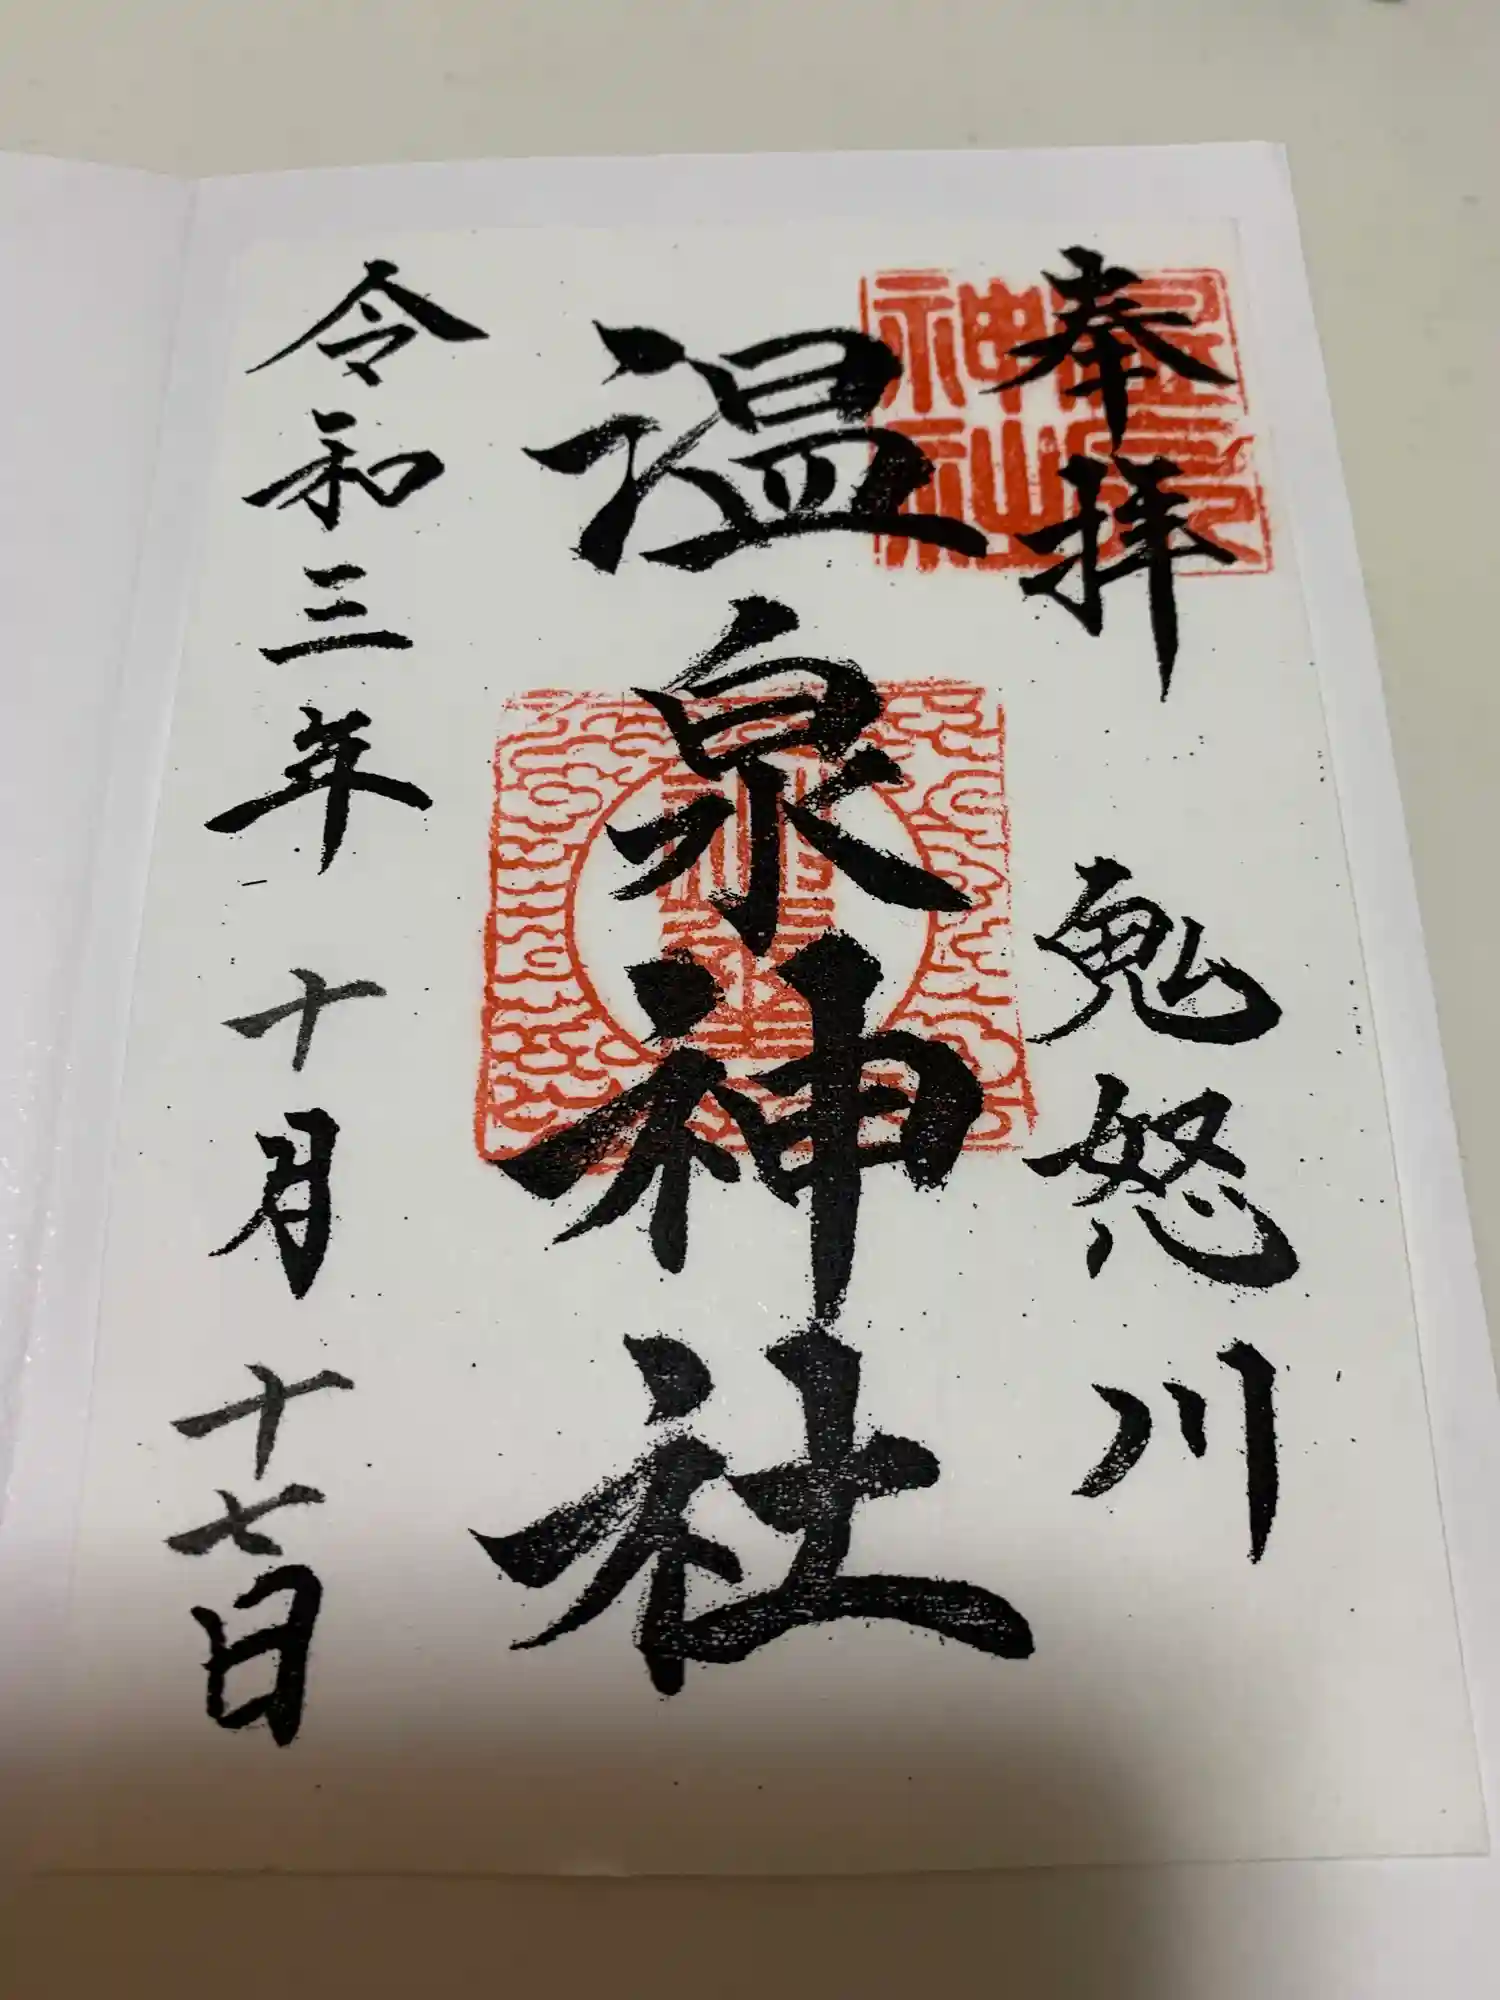 奉拝 鬼怒川
温泉神社
令和三年 十月 十七日
温泉神社